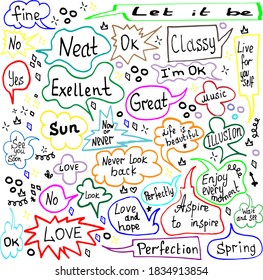 fine
Let it be
No
Neat
Ok
Classy
Live
for
your
self
Yes
I'm OK
Exellent
Great
music
Sun
Now
or
Never
life is
beautiful
ILLUSION
I
See
you
Soon
LOVE
Never Look
back
Enjoy
every
moment
No
Look
Perfectly
Wait and
see
Love
and
hope
Aspire
to
inspire
OK
LOVE
Perfection
Spring
shutterstock.com · 1834913854